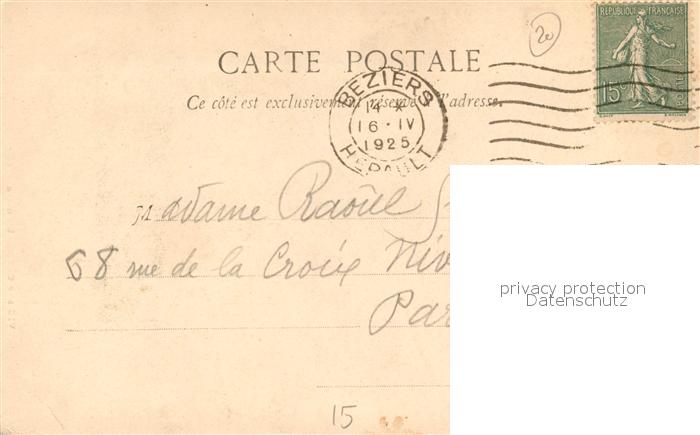 20
REPUBLIQUE FRANÇAISE
15c
CARTE POSTALE
Ce côté est exclusivement réservé à l'adresse.
BEZIERS
14 *
16 · IV
1925
HERAULT
Madame Raoul
68 rue de la Croix Niv
Par
privacy protection
Datenschutz
15